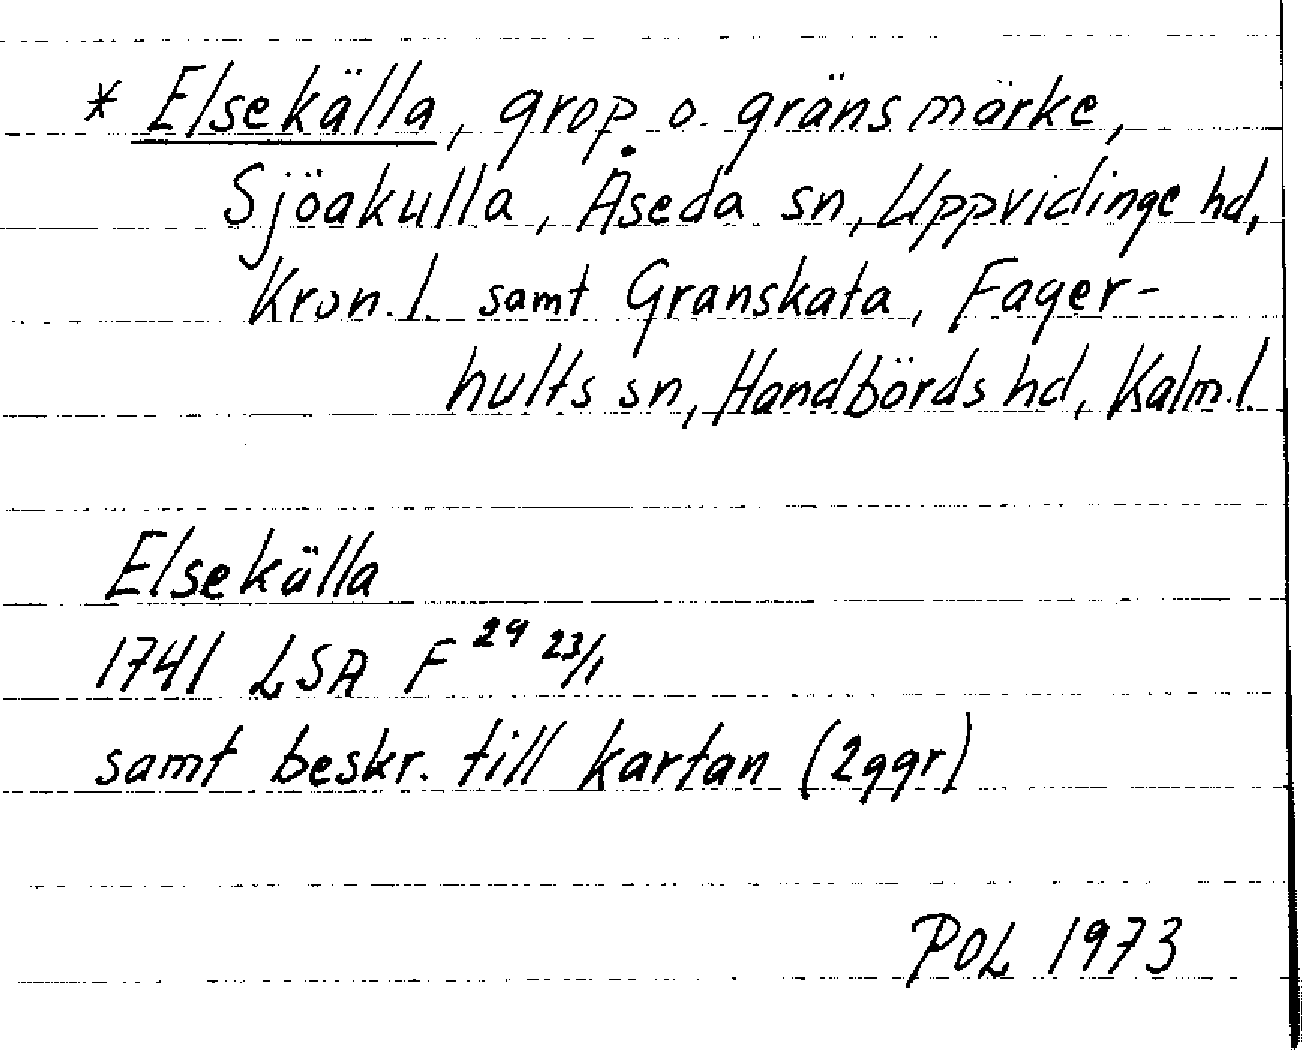 * Elsekälla, grop o. gränsmärke,
Sjöakulla, Åseda sn, Uppvidinge hd,
Kron. l. samt Granskata, Fager-
hults sn, Handbörds hd, Kalm. l.
Elsekälla
1741 LSA F 29 23/1
samt beskr. till kartan (2ggr)
POL 1973